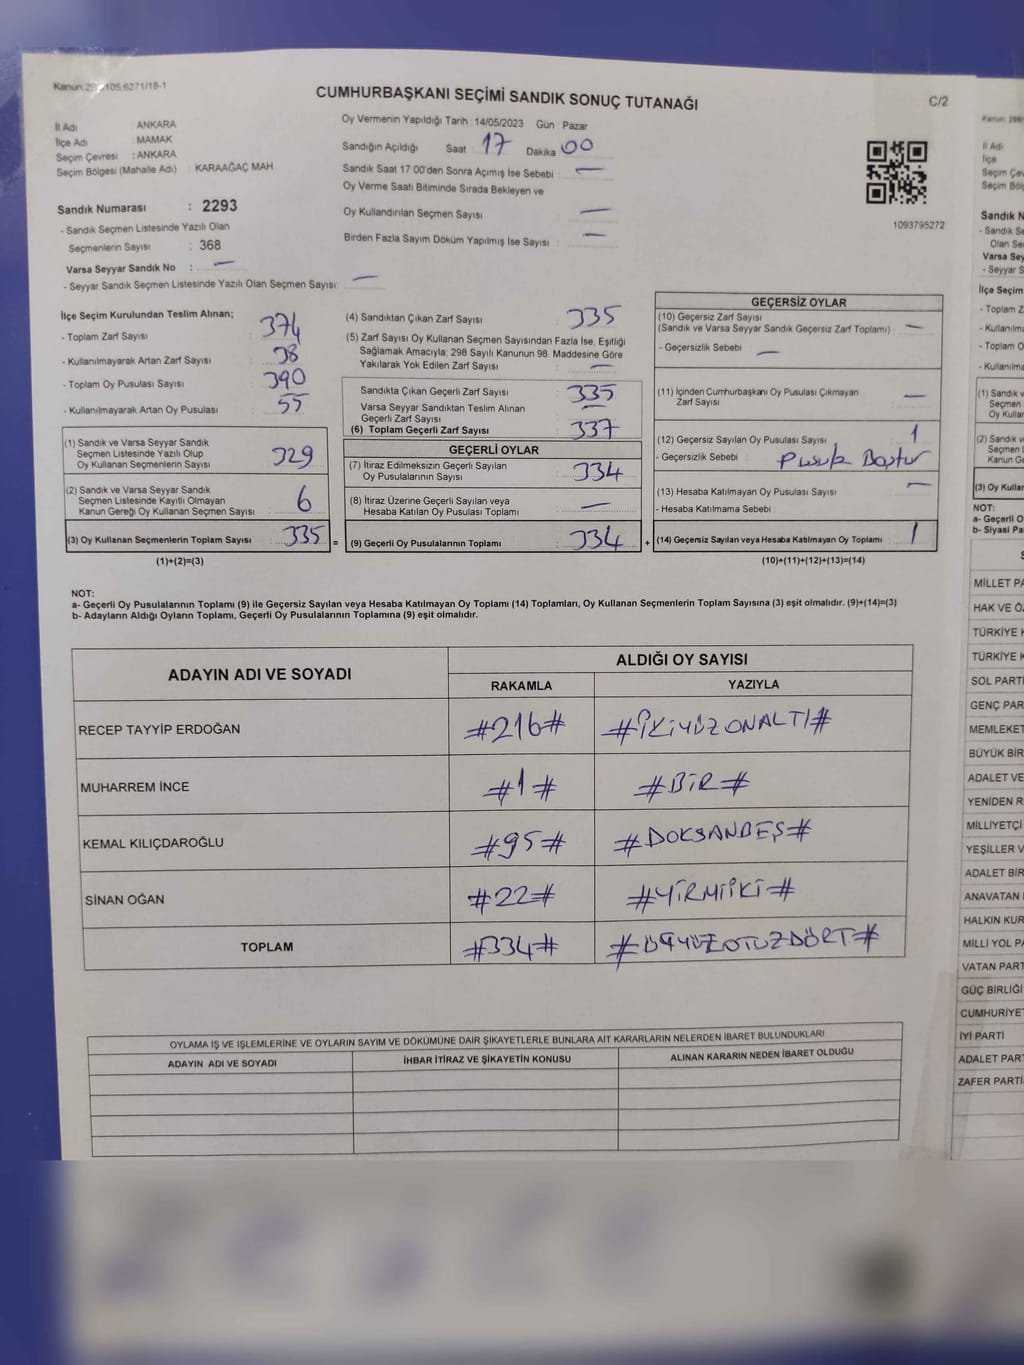 CUMHURBAŞKANI SEÇİMİ SANDIK SONUÇ TUTANAĞI
C/2
İl Adı ANKARA
İlçe Adı MAMAK
Seçim Çevresi : ANKARA
Seçim Bölgesi (Mahalle Adı) : KARAAĞAÇ MAH.
Sandık Numarası : 2293
- Sandık Seçmen Listesinde Yazılı Olan
Seçmenlerin Sayısı : 368
Varsa Seyyar Sandık No : —
- Seyyar Sandık Seçmen Listesinde Yazılı Olan Seçmen Sayısı: —
Oy Vermenin Yapıldığı Tarih : 14/05/2023 Gün : Pazar
Sandığın Açıldığı Saat 17 Dakika 00
Sandık Saat 17:00'den Sonra Açımış İse Sebebi : —
Oy Verme Saati Bitiminde Sırada Bekleyen ve
Oy Kullandırılan Seçmen Sayısı —
Birden Fazla Sayım Döküm Yapılmış İse Sayısı : —
1093795272
İlçe Seçim Kurulundan Teslim Alınan;
- Toplam Zarf Sayısı : 374
- Kullanılmayarak Artan Zarf Sayısı : 38
- Toplam Oy Pusulası Sayısı : 390
- Kullanılmayarak Artan Oy Pusulası : 55
(1) Sandık ve Varsa Seyyar Sandık
Seçmen Listesinde Yazılı Olup
Oy Kullanan Seçmenlerin Sayısı : 329
(2) Sandık ve Varsa Seyyar Sandık
Seçmen Listesinde Kayıtlı Olmayan
Kanun Gereği Oy Kullanan Seçmen Sayısı : 6
(3) Oy Kullanan Seçmenlerin Toplam Sayısı : 335 =
(1)+(2)=(3)
(4) Sandıktan Çıkan Zarf Sayısı : 335
(5) Zarf Sayısı Oy Kullanan Seçmen Sayısından Fazla İse, Eşitliği
Sağlamak Amacıyla, 298 Sayılı Kanunun 98. Maddesine Göre
Yakılarak Yok Edilen Zarf Sayısı : —
Sandıkta Çıkan Geçerli Zarf Sayısı : 335
Varsa Seyyar Sandıktan Teslim Alınan
Geçerli Zarf Sayısı : —
(6) Toplam Geçerli Zarf Sayısı : 337
GEÇERLİ OYLAR
(7) İtiraz Edilmeksizin Geçerli Sayılan
Oy Pusulalarının Sayısı : 334
(8) İtiraz Üzerine Geçerli Sayılan veya
Hesaba Katılan Oy Pusulası Toplamı : —
(9) Geçerli Oy Pusulalarının Toplamı : 334 +
GEÇERSİZ OYLAR
(10) Geçersiz Zarf Sayısı
(Sandık ve Varsa Seyyar Sandık Geçersiz Zarf Toplamı) : —
- Geçersizlik Sebebi : —
(11) İçinden Cumhurbaşkanı Oy Pusulası Çıkmayan
Zarf Sayısı : —
(12) Geçersiz Sayılan Oy Pusulası Sayısı : 1
- Geçersizlik Sebebi :
(13) Hesaba Katılmayan Oy Pusulası Sayısı : —
- Hesaba Katılmama Sebebi :
(14) Geçersiz Sayılan veya Hesaba Katılmayan Oy Toplamı : 1
(10)+(11)+(12)+(13)=(14)
NOT:
a- Geçerli Oy Pusulalarının Toplamı (9) ile Geçersiz Sayılan veya Hesaba Katılmayan Oy Toplamı (14) Toplamları, Oy Kullanan Seçmenlerin Toplam Sayısına (3) eşit olmalıdır. (9)+(14)=(3)
b- Adayların Aldığı Oyların Toplamı, Geçerli Oy Pusulalarının Toplamına (9) eşit olmalıdır.
ADAYIN ADI VE SOYADI ALDIĞI OY SAYISI
RAKAMLA YAZIYLA
RECEP TAYYİP ERDOĞAN #216# #İKİYÜZONALTI#
MUHARREM İNCE #1# #BİR#
KEMAL KILIÇDAROĞLU #95# #DOKSANBEŞ#
SİNAN OĞAN #22# #YİRMİİKİ#
TOPLAM #334# #ÜÇYÜZOTUZDÖRT#
OYLAMA İŞ VE İŞLEMLERİNE VE OYLARIN SAYIM VE DÖKÜMÜNE DAİR ŞİKAYETLERLE BUNLARA AİT KARARLARIN NELERDEN İBARET BULUNDUKLARI
ADAYIN ADI VE SOYADI İHBAR İTİRAZ VE ŞİKAYETİN KONUSU ALINAN KARARIN NEDEN İBARET OLDUĞU
İl Adı
İlçe
Sandık N
- Sandık Se
Olan Se
Varsa Sey
- Seyyar S
İlçe Seçim
- Toplam Z
- Kullanılma
- Toplam O
- Kullanılma
(1) Sandık
Seçmen
Oy Kullan
(2) Sandık ve
Seçmen L
Kanun Ge
(3) Oy Kullan
NOT:
a- Geçerli O
b- Siyasi Pa
MİLLET PA
HAK VE Ö
TÜRKİYE K
TÜRKİYE K
SOL PARTİ
GENÇ PAR
MEMLEKET
BÜYÜK BİR
ADALET VE
YENİDEN R
MİLLİYETÇİ
YEŞİLLER V
ADALET BİR
ANAVATAN
HALKIN KUR
MİLLİ YOL PA
VATAN PART
GÜÇ BİRLİĞİ
CUMHURİYET
İYİ PARTİ
ADALET PART
ZAFER PARTİ